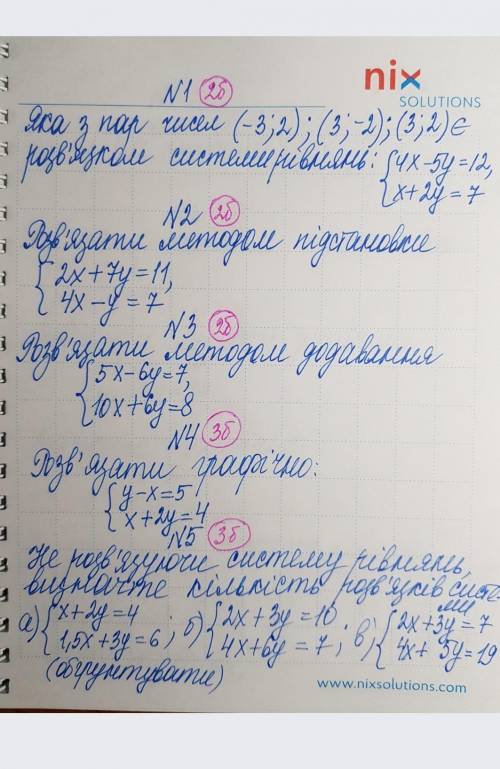 nix
SOLUTIONS
N1 2б
Яка з пар чисел (-3;2); (3;-2); (3;2) є
розв'язком системи рівнянь: {4x-5y=12,
x+2y=7
N2 2б
Розв'язати методом підстановки
{2x+7y=11,
4x-y=7
N3 2б
Розв'язати методом додавання
{5x-6y=7,
10x+6y=8
N4 3б
Розв'язати графічно:
{y-x=5
x+2y=4
N5 3б
Не розв'язуючи систему рівнянь,
визначте кількість розв'язків систе-
ми
а) {x+2y=4 ; б) {2x+3y=10 ; в) {2x+3y=7
1,5x+3y=6 4x+6y=7 4x+5y=19
(обґрунтувати)
www.nixsolutions.com